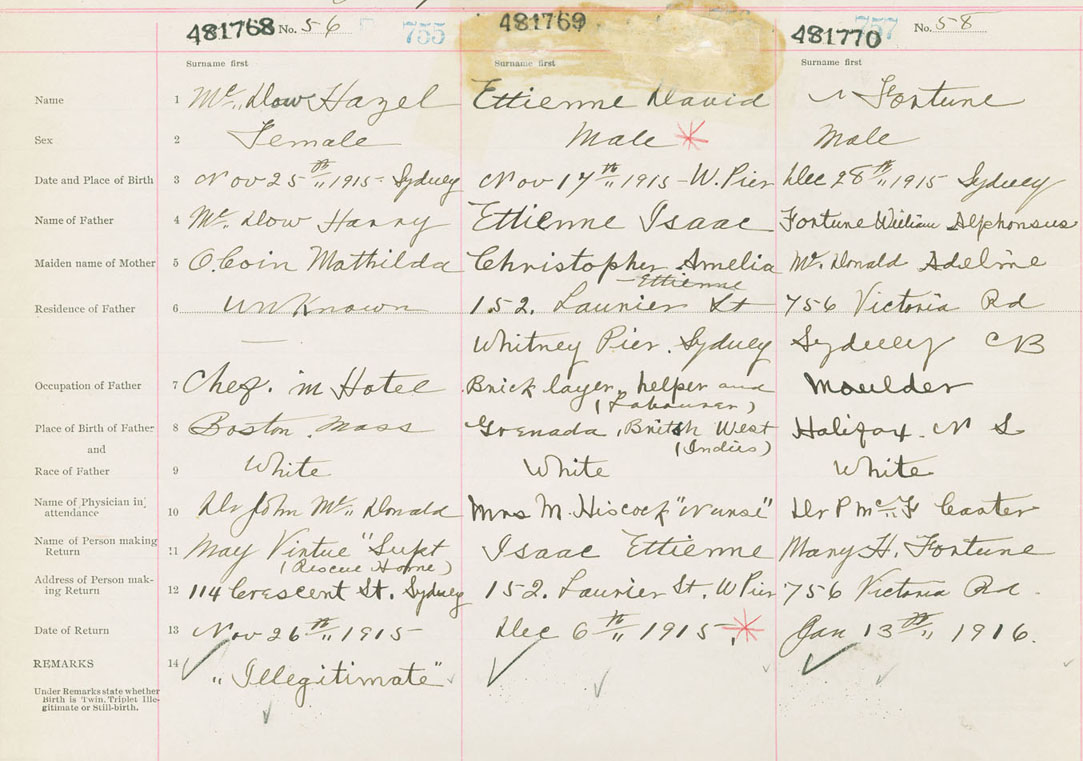 481768 No. 56 755 481769 481770 757 No. 58
Surname first Surname first Surname first
Name 1 Mc„ Dow Hazel Ettienne David Fortune
Sex 2 Female Male Male
Date and Place of Birth 3 Nov 25th„ 1915 - Sydney Nov 17th„ 1915 - W. Pier Dec 28th„ 1915 Sydney
Name of Father 4 Mc. Dow Harry Ettienne Isaac Fortune William Alphonsus
Maiden name of Mother 5 O.Coin Mathilda Christopher Amelia Mc. Donald Adeline
- Ettienne
Residence of Father 6 unknown 152. Laurier St 756 Victoria Rd
— Whitney Pier. Sydney Sydney CB
Occupation of Father 7 Chef. in Hotel Brick layer, helper and Moulder
(Labourer)
Place of Birth of Father 8 Boston. Mass Grenada, British West Halifax. N S
and (Indies)
Race of Father 9 White White White
Name of Physician in attendance 10 Dr John Mc„ Donald Mrs M. Hiscock "Nurse" Dr P Mc„ F Carter
Name of Person making Return 11 May Virtue "Supt Isaac Ettienne Mary H. Fortune
(Rescue Home)
Address of Person mak-
ing Return 12 114 Crescent St. Sydney 152. Laurier St. W Pier 756 Victoria Rd.
Date of Return 13 Nov 26th„ 1915 Dec 6th„ 1915. Jan 13th„ 1916.
REMARKS 14 „ Illegitimate"
Under Remarks state whether
Birth is Twin, Triplet Ille-
gitimate or Still-birth.